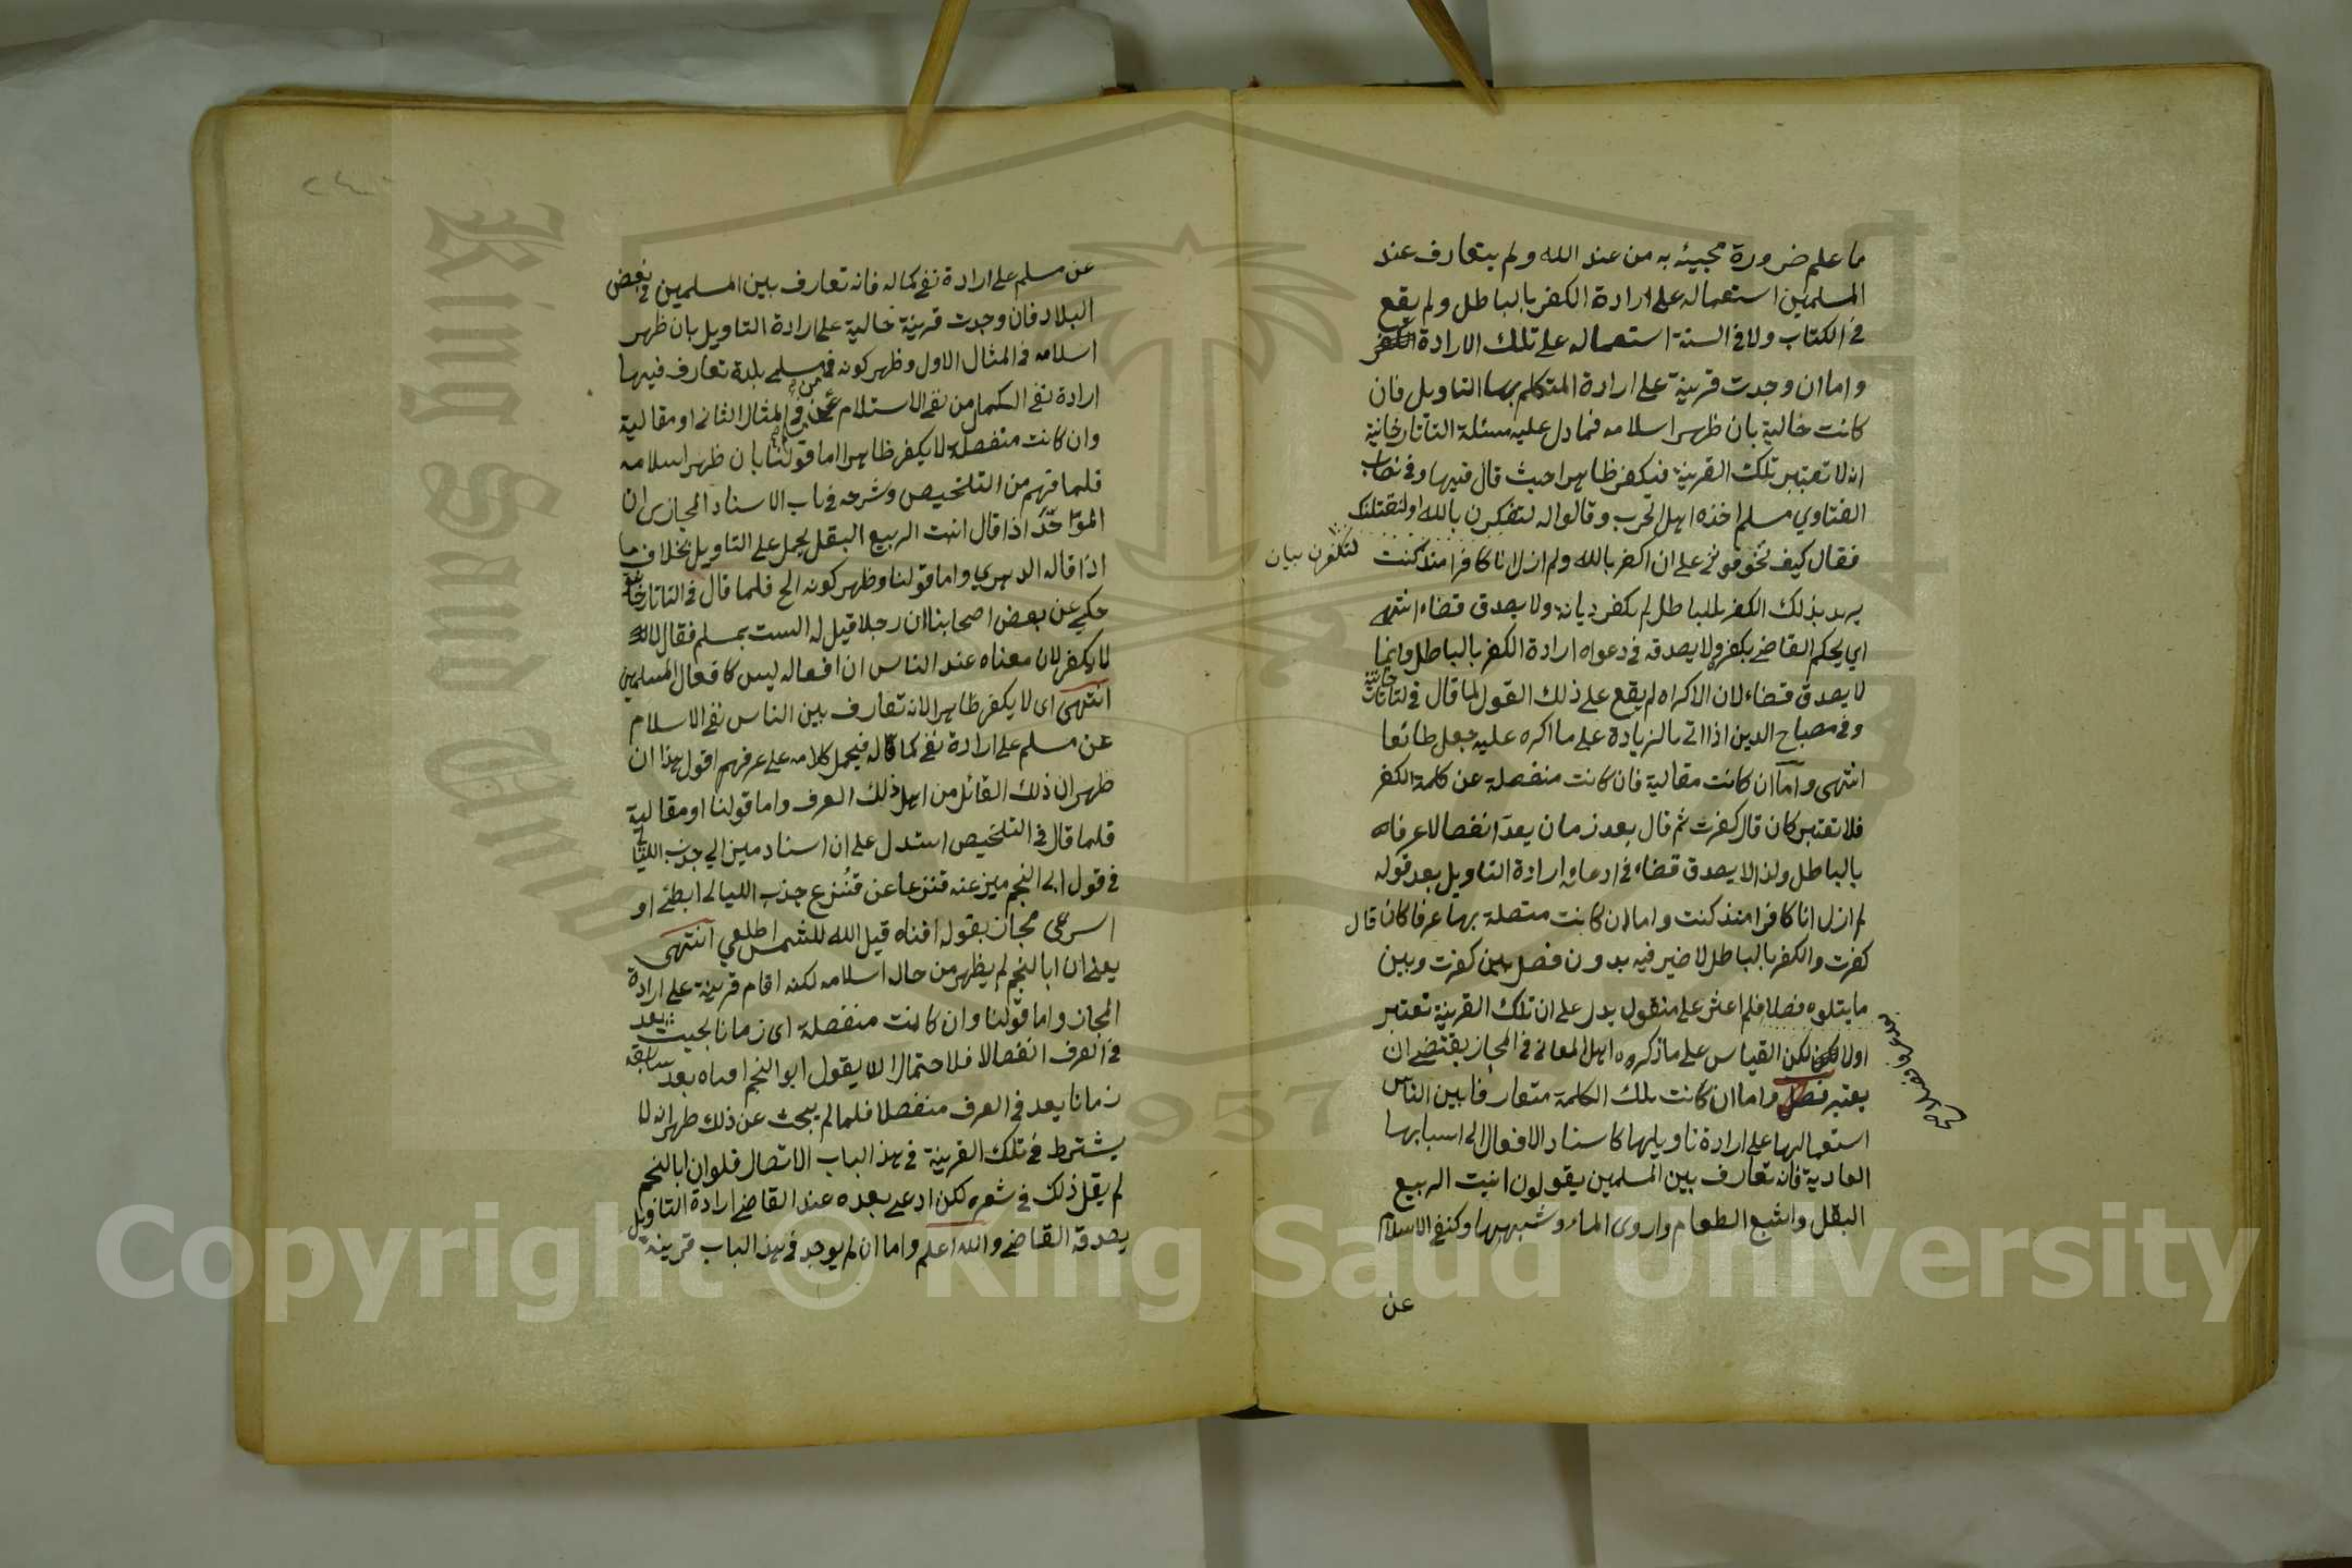 ما علم ضرورة مجيئه به من عند الله ولم يتعارف عند
المسلمين استعماله على ارادة الكفر بالباطل ولم يقع
في الكتاب ولا في السنة استعماله على تلك الارادة
واما ان وجدت قرينة على ارادة المتكلم بها التاويل فان
كانت حالية بان ظهر اسلامه فما دل عليه مسئلة التاتارخانية
انه لا تعتبر تلك القرينة فيكفر ظاهرا حيث قال فيها وفي نصاب
الفتاوي مسلم اخذه اهل الحرب وقالوا له لتكفرن بالله او لنقتلنك
فقال كيف تخوفوني على ان اكفر بالله ولم ازل انا كافرا منذ كنت
لتكفرن بيان
يريد بذلك الكفر بالباطل لم يكفر ديانة ولا يصدق قضاء انتهى
اي يحكم القاضي بكفره ولا يصدقه في دعواه ارادة الكفر بالباطل وانما
لا يصدق قضاء لان الاكراه لم يقع على ذلك القول لما قال في التاتارخانية
وفي مصباح الدين اذا اتى بالزيادة على ما اكره عليه جعل طائعا
انتهى واما ان كانت مقالية فان كانت منفصلة عن كلمة الكفر
فلا تعتبر كان قال كفرت ثم قال بعد زمان يعد انفصالا عرفا
بالباطل ولذا لا يصدق قضاء في ادعائه ارادة التاويل بعد قوله
لم ازل انا كافرا منذ كنت واما ان كانت متصلة بها عرفا كان قال
كفرت والكفر بالباطل لا ضير فيه بدون فصل بين كفرت وبين
ما يتلوه فصلا فلم اعثر على منقول يدل على ان تلك القرينة تعتبر
او لا لكن القياس على ما ذكروه اهل المعاني في المجاز يقتضي ان
يعتبر فصل واما ان كانت تلك الكلمة متعارفا بين الناس
استعمالها على ارادة تاويلها كاسناد الافعال الى اسبابها
العادية فانه تعارف بين المسلمين يقولون انبت الربيع
البقل واشبع الطعام واروى الماء وشبهها وكنفي الاسلام
عن
عن مسلم على ارادة نفي كماله فانه تعارف بين المسلمين في بعض
البلاد فان وجدت قرينة حالية على ارادة التاويل بان ظهر
اسلامه في المثال الاول وظهر كونه من مسلمي بلدة تعارف فيها
ارادة نفي الكمال من نفي الاسلام في المثال الثاني او مقالية
وان كانت منفصلة لا يكفر ظاهرا اما قولنا بان ظهر اسلامه
فلما فهم من التلخيص وشرحه في باب الاسناد المجازي ان
الموحد اذا قال انبت الربيع البقل يحمل على التاويل بخلاف ما
اذا قاله الدهري واما قولنا وظهر كونه الخ فلما قال في التاتارخانية
حكي عن بعض اصحابنا ان رجلا قيل له الست بمسلم فقال لا
لا يكفر لان معناه عند الناس ان افعاله ليس كافعال المسلمين
انتهى اى لا يكفر ظاهرا لانه تعارف بين الناس نفي الاسلام
عن مسلم على ارادة نفي كماله فيحمل كلامه على عرفهم اقول هذا ان
ظهر ان ذلك القائل من اهل ذلك العرف واما قولنا او مقالية
فلما قال في التلخيص استدل على ان اسناد ميز الى جذب الليالي
في قول ابي النجم ميز عنه قنزعا عن قنزع جذب الليالي ابطئي او
اسرعي مجاز بقوله افناه قيل الله للشمس اطلعي انتهى
يعني ان ابا النجم لم يظهر من حاله اسلامه لكنه اقام قرينة على ارادة
المجاز واما قولنا وان كانت منفصلة اى زمانا بحيث يعد
في العرف انفصالا فلاحتمال ان لا يقول ابو النجم افناه بعد سابقه
زمانا يعد في العرف منفصلا فلما لم يبحث عن ذلك ظهر انه لا
يشترط في تلك القرينة في هذا الباب الاتصال فلو ان ابا النجم
لم يقل ذلك في شعره لكن ادعى بعده عند القاضي ارادة التاويل
يصدقه القاضي والله اعلم واما ان لم يوجد في هذا الباب قرينة
King Saud University
1957
Copyright © King Saud University